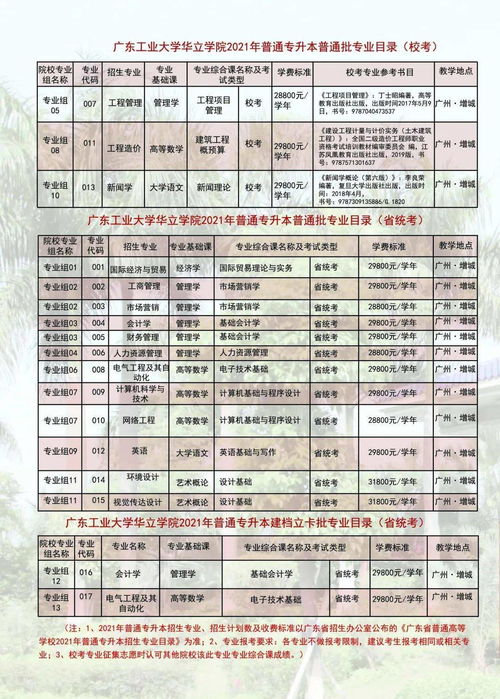 广东工业大学华立学院2021年普通专升本普通批专业目录（校考）
院校专业组名称 专业代码 招生专业 专业基础课 专业综合课名称及考试类型 学费标准 校考专业参考书目 教学地点
专业组05 007 工程管理 管理学 工程项目管理 校考 28800元/学年 《工程项目管理》：丁士昭编著。高等教育出版社出版，出版时间2017年5月9日，书号：9787040473537 广州·增城
专业组08 011 工程造价 高等数学 建筑工程概预算 校考 29800元/学年 《建设工程计量与计价实务（土木建筑工程）》：全国二级造价工程师职业资格考试培训教材编审委员会 编，江苏凤凰教育出版社出版，2019版，书号：9787571301637 广州·增城
专业组10 013 新闻学 大学语文 新闻理论 校考 29800元/学年 《新闻学概论（第六版）》：李良荣编著，复旦大学出版社出版，出版时间：2018年4月，书号：9787309135886/G.1820 广州·增城
广东工业大学华立学院2021年普通专升本普通批专业目录（省统考）
院校专业组名称 专业代码 招生专业 专业基础课 专业综合课名称及考试类型 学费标准 教学地点
专业组01 001 国际经济与贸易 经济学 国际贸易理论与实务 省统考 29800元/学年 广州·增城
专业组02 002 工商管理 管理学 市场营销学 省统考 29800元/学年 广州·增城
专业组02 003 市场营销 管理学 市场营销学 省统考 28800元/学年 广州·增城
专业组03 004 会计学 管理学 基础会计学 省统考 29800元/学年 广州·增城
专业组03 005 财务管理 管理学 基础会计学 省统考 29800元/学年 广州·增城
专业组04 006 人力资源管理 管理学 人力资源管理 省统考 28800元/学年 广州·增城
专业组06 008 电气工程及其自动化 高等数学 电子技术基础 省统考 29800元/学年 广州·增城
专业组07 009 计算机科学与技术 高等数学 计算机基础与程序设计 省统考 29800元/学年 广州·增城
专业组07 010 网络工程 高等数学 计算机基础与程序设计 省统考 28800元/学年 广州·增城
专业组09 012 英语 大学语文 英语基础与写作 省统考 29800元/学年 广州·增城
专业组11 014 环境设计 艺术概论 设计基础 省统考 31800元/学年 广州·增城
专业组11 015 视觉传达设计 艺术概论 设计基础 省统考 31800元/学年 广州·增城
广东工业大学华立学院2021年普通专升本建档立卡批专业目录（省统考）
院校专业组名称 专业代码 专业名称 专业基础课 专业综合课名称及考试类型 学费标准 教学地点
专业组12 016 会计学 管理学 基础会计学 省统考 29800元/学年 广州·增城
专业组13 017 电气工程及其自动化 高等数学 电子技术基础 省统考 29800元/学年 广州·增城
（注：1、2021年普通专升本招生专业、招生计划数及收费标准以广东省招生办公室公布的《广东省普通高等
学校2021年普通专升本招生专业目录》为准；2、专业报考要求：各专业不做报考限制，建议考生报考相同或相关专
业；3、校考专业征集志愿时认可其他院校该此专业专业综合课成绩。）